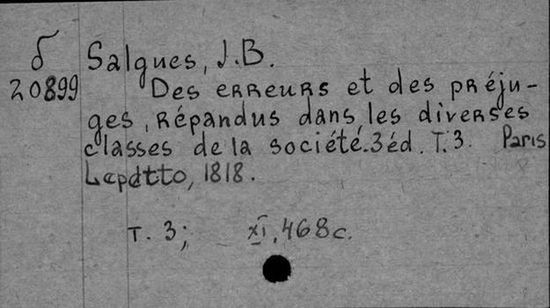 δ Salgues, J.B.
20899 Des erreurs et des préju-
ges, répandus dans les diverses
classes de la société. 3 éd. T. 3. Paris
Lepetto, 1818.
т. 3; XI, 468 c.